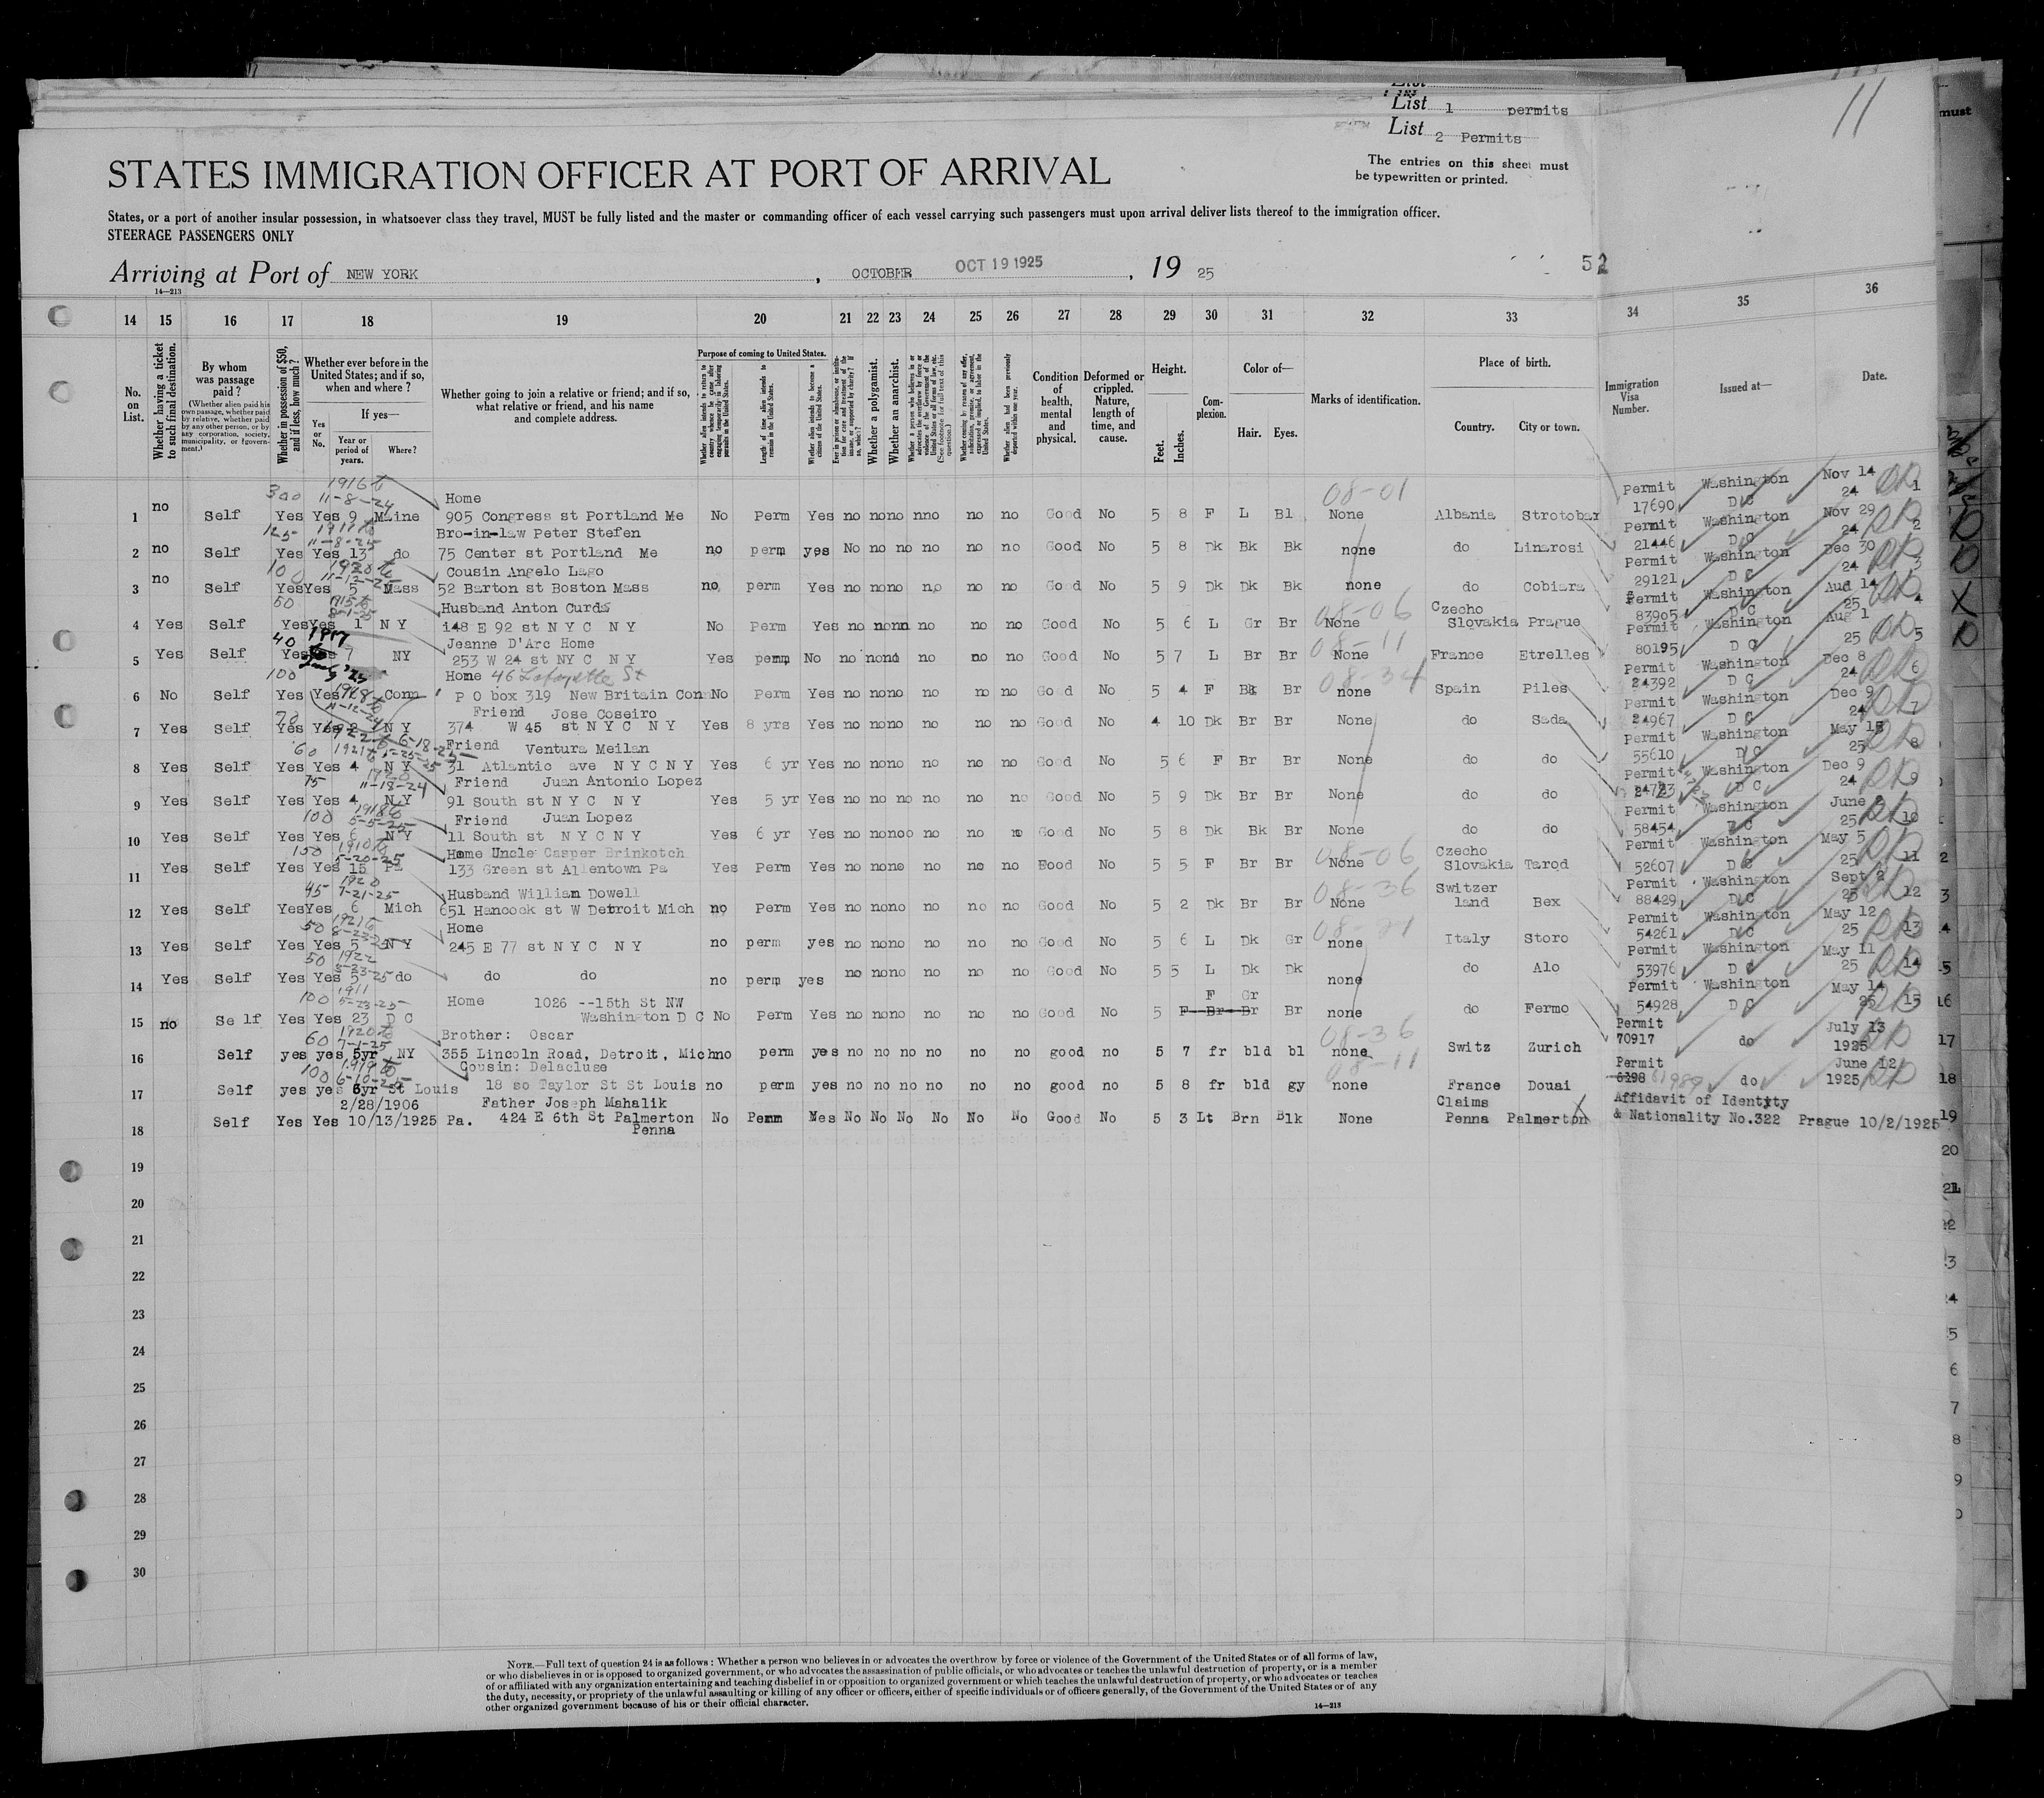 List 1 permits
List 2 Permits
11
must
The entries on this sheet must
be typewritten or printed.
STATES IMMIGRATION OFFICER AT PORT OF ARRIVAL
States, or a port of another insular possession, in whatsoever class they travel, MUST be fully listed and the master or commanding officer of each vessel carrying such passengers must upon arrival deliver lists thereof to the immigration officer.
STEERAGE PASSENGERS ONLY
Arriving at Port of NEW YORK, OCTOBER OCT 19 1925, 19 25 52
14—213
14 15 16 17 18 19 20 21 22 23 24 25 26 27 28 29 30 31 32 33 34 35 36
No. on List.
Whether having a ticket to such final destination.
By whom was passage paid?
(Whether alien paid his own passage, whether paid by relative, whether paid by any other person, or by any corporation, society, municipality, or government.)
Whether in possession of $50, and if less, how much?
Whether ever before in the United States; and if so, when and where?
If yes—
Yes or No.
Year or period of years.
Where?
Whether going to join a relative or friend; and if so, what relative or friend, and his name and complete address.
Purpose of coming to United States.
Whether alien intends to return to country whence he came after engaging temporarily in laboring pursuits in the United States.
Length of time alien intends to remain in the United States.
Whether alien intends to become a citizen of the United States.
Ever in prison or almshouse, or institution for care and treatment of the insane, or supported by charity? If so, which?
Whether a polygamist.
Whether an anarchist.
Whether coming by reason of any offer, solicitation, promise, or agreement, expressed or implied, to labor in the United States.
Whether alien had been previously deported within one year.
Condition of health, mental and physical.
Deformed or crippled. Nature, length of time, and cause.
Height.
Feet.
Inches.
Complexion.
Color of—
Hair.
Eyes.
Marks of identification.
Place of birth.
Country.
City or town.
Immigration Visa Number.
Issued at—
Date.
300 1916 to 11-8-24 Home 08-01 Permit Washington Nov 14
1 no Self Yes Yes 9 Maine 905 Congress st Portland Me No Perm Yes no nono nno no no Good No 5 8 F L Bl None Albania Strotobar 17690 D C 24 1
125 Bro-in-law Peter Stefen Permit Washington Nov 29
2 no Self Yes Yes 13 do 75 Center st Portland Me no perm yes No no no no no no Good No 5 8 Dk Bk Bk none do Linarosi 21446 D C 24 2
100 1920 to Cousin Angelo Lago Permit Washington Dec 30
3 no Self YesYes 5 Mass 52 Barton st Boston Mass no perm Yes no nono no no no Good No 5 9 Dk Dk Bk none do Cobiara 29121 D C 24 3
50 Husband Anton Curda 08-06 Czecho Permit Washington Aug 14
4 Yes Self YesYes 1 N Y 148 E 92 st N Y C N Y No Perm Yes no nonn no no no Good No 5 6 L Gr Br None Slovakia Prague 83905 D C 25 4
40 1917 Jeanne D'Arc Home 08-11 Permit Washington Aug 1
5 Yes Self Yes 7 NY 253 W 24 st NY C N Y Yes perm No no nono no no no Good No 5 7 L Br Br None France Etrelles 80195 D C 25 5
100 Home 46 Lafayette St 08-34 Permit Washington Dec 8
6 No Self Yes Yes Conn P O box 319 New Britain Con No Perm Yes no nono no no no Good No 5 4 F Bk Br none Spain Piles 24392 D C 24 6
70 Friend Jose Coseiro Permit Washington Dec 9
7 Yes Self Yes N Y 374 W 45 st N Y C N Y Yes 8 yrs Yes no nono no no no Good No 4 10 Dk Br Br None do Sada 24967 D C 24 7
60 Friend Ventura Meilan Permit Washington May 15
8 Yes Self Yes Yes 4 N Y 31 Atlantic ave N Y C N Y Yes 6 yr Yes no nono no no no Good No 5 6 F Br Br None do do 55610 D C 25 8
75 11-18-24 Friend Juan Antonio Lopez Permit Washington Dec 9
9 Yes Self Yes Yes 4 N Y 91 South st N Y C N Y Yes 5 yr Yes no no no no no no Good No 5 9 Dk Br Br None do do D C 24 9
100 1918 to 5-5-25 Friend Juan Lopez Permit Washington June 2
10 Yes Self Yes Yes 6 N Y 11 South st N Y C N Y Yes 6 yr Yes no nonoo no no no Good No 5 8 Dk Bk Br None do do 58454 D C 25 10
150 1910 to 5-20-25 Home Uncle Casper Brinkotch 08-06 Czecho Permit Washington May 5
11 Yes Self Yes Yes 15 Pa 133 Green st Allentown Pa Yes Perm Yes no nono no no no Food No 5 5 F Br Br None Slovakia Tarod 52607 D C 25 11
45 1920 7-21-25 Husband William Dowell 08-36 Switzer Permit Washington Sept 2
12 Yes Self YesYes 6 Mich 651 Hancock st W Detroit Mich no Perm Yes no nono no no no Good No 5 2 Dk Br Br None land Bex 88429 D C 25 12
50 Home Permit Washington May 12
13 Yes Self Yes Yes 5 N Y 245 E 77 st N Y C N Y no perm yes no nono no no no Good No 5 6 L Dk Gr none Italy Storo 54261 D C 25 13
50 1922 Permit Washington May 11
14 Yes Self Yes Yes 5 do do do no perm yes no nono no no no Good No 5 5 L Dk Dk none do Alo 53976 D C 25 14
100 1911 5-23-25 Home 1026 --15th St NW F Gr Permit Washington May 14
15 no Se lf Yes Yes 23 D C Washington D C No Perm Yes no nono no no no Good No 5 F Br Br Br none do Fermo 54928 D C 25 15
60 1920 to 7-1-25 Brother: Oscar 08-36 Permit July 13
16 Self yes yes 5yr NY 355 Lincoln Road, Detroit, Mich no perm yes no no no no no no good no 5 7 fr bld bl none Switz Zurich 70917 do 1925
100 1919 to 6-10-25 Cousin: Delacluse 08-11 Permit June 12
17 Self yes yes 6yr St Louis 18 so Taylor St St Louis no perm yes no no no no no no good no 5 8 fr bld gy none France Douai 6198 61989 do 1925
2/28/1906 Father Joseph Mahalik Claims Affidavit of Identity
18 Self Yes Yes 10/13/1925 Pa. 424 E 6th St Palmerton Penna No Perm Yes No No No No No No Good No 5 3 Lt Brn Blk None Penna Palmerton & Nationality No.322 Prague 10/2/1925
19
20
21
22
23
24
25
26
27
28
29
30
NOTE.—Full text of question 24 is as follows: Whether a person who believes in or advocates the overthrow by force or violence of the Government of the United States or of all forms of law,
or who disbelieves in or is opposed to organized government, or who advocates the assassination of public officials, or who advocates or teaches the unlawful destruction of property, or is a member
of or affiliated with any organization entertaining and teaching disbelief in or opposition to organized government or which teaches the unlawful destruction of property, or who advocates or teaches
the duty, necessity, or propriety of the unlawful assaulting or killing of any officer or officers, either of specific individuals or of officers generally, of the Government of the United States or of any
other organized government because of his or their official character.
14—213